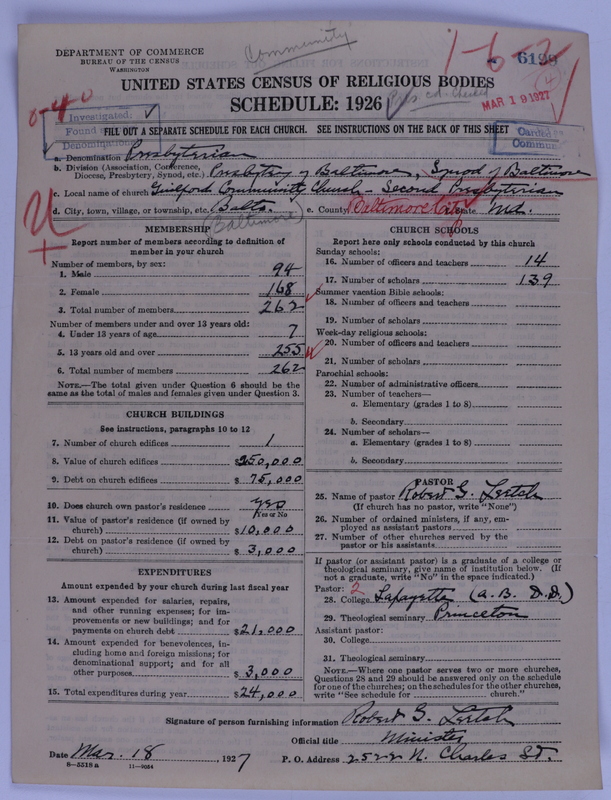 DEPARTMENT OF COMMERCE
BUREAU OF THE CENSUS
WASHINGTON
Community
1-6-2
6199
4
UNITED STATES CENSUS OF RELIGIOUS BODIES
SCHEDULE: 1926
Pres. cd. Checked
MAR 19 1927
0-40
Investigated: ✓
Found
Denomination
Carded
Commun
FILL OUT A SEPARATE SCHEDULE FOR EACH CHURCH. SEE INSTRUCTIONS ON THE BACK OF THIS SHEET
a. Denomination Presbyterian
b. Division (Association, Conference, Diocese, Presbytery, Synod, etc.) Presbytery of Baltimore, Synod of Baltimore
c. Local name of church Guilford Community Church - Second Presbyterian
d. City, town, village, or township, etc. Balto. (Baltimore) e. County Baltimore City State Md.
U
+
MEMBERSHIP
Report number of members according to definition of member in your church
Number of members, by sex:
1. Male 94
2. Female 168
3. Total number of members 262
Number of members under and over 13 years old:
4. Under 13 years of age 7
5. 13 years old and over 255
6. Total number of members 262
NOTE.—The total given under Question 6 should be the same as the total of males and females given under Question 3.
CHURCH BUILDINGS
See instructions, paragraphs 10 to 12
7. Number of church edifices 1
8. Value of church edifices $250,000
9. Debt on church edifices $ 75,000
10. Does church own pastor's residence yes
Yes or No
11. Value of pastor's residence (if owned by church) $10,000
12. Debt on pastor's residence (if owned by church) $ 3,000
EXPENDITURES
Amount expended by your church during last fiscal year
13. Amount expended for salaries, repairs, and other running expenses; for improvements or new buildings; and for payments on church debt $21,000
14. Amount expended for benevolences, including home and foreign missions; for denominational support; and for all other purposes $3,000
15. Total expenditures during year $24,000
CHURCH SCHOOLS
Report here only schools conducted by this church
Sunday schools:
16. Number of officers and teachers 14
17. Number of scholars 139
Summer vacation Bible schools:
18. Number of officers and teachers
19. Number of scholars
Week-day religious schools:
20. Number of officers and teachers
21. Number of scholars
Parochial schools:
22. Number of administrative officers
23. Number of teachers—
a. Elementary (grades 1 to 8)
b. Secondary
24. Number of scholars—
a. Elementary (grades 1 to 8)
b. Secondary
PASTOR
25. Name of pastor Robert G. Leetch
(If church has no pastor, write "None")
26. Number of ordained ministers, if any, employed as assistant pastors
27. Number of other churches served by the pastor or his assistants
If pastor (or assistant pastor) is a graduate of a college or theological seminary, give name of institution below. (If not a graduate, write "No" in the space indicated.)
Pastor: 2
28. College Lafayette (A.B. D.D.)
29. Theological seminary Princeton
Assistant pastor:
30. College
31. Theological seminary
NOTE.—Where one pastor serves two or more churches, Questions 28 and 29 should be answered only on the schedule for one of the churches; on the schedules for the other churches, write "See schedule for ______ church."
Signature of person furnishing information Robert G. Leetch
Official title Minister
Date Mar. 18, 1927 P. O. Address 2522 N. Charles St.
8-5518a 11-9084